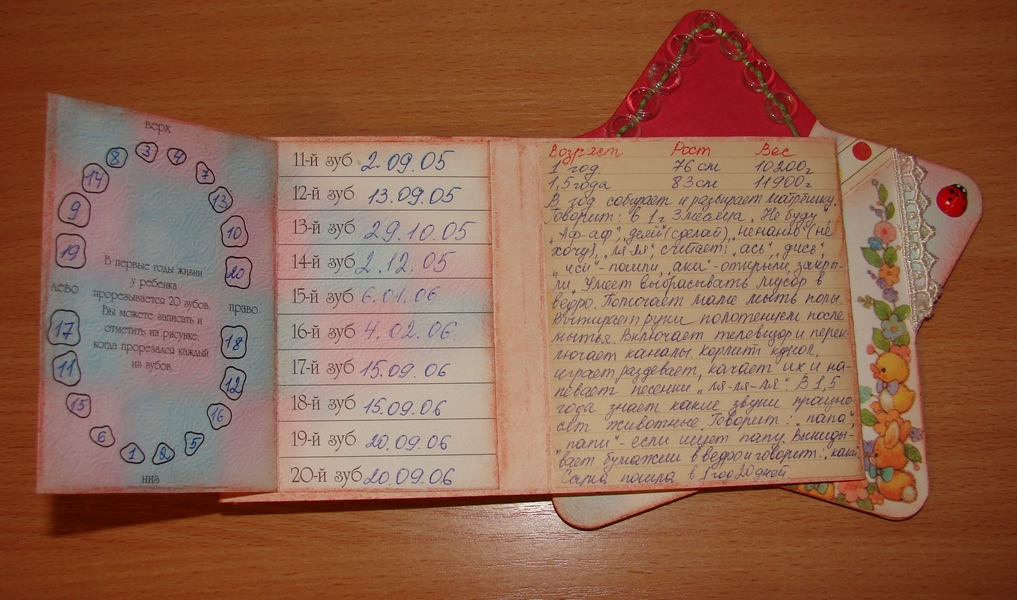 верх
8 3 4
14 7
13
9
10
19
20
В первые годы жизни
у ребенка
лево право
прорезывается 20 зубов.
Вы можете записать и
отметить на рисунке,
когда прорезался каждый
из зубов.
17 18
11 12
15 16
6 5
1 2
низ
11-й зуб 2.09.05
12-й зуб 13.09.05
13-й зуб 29.10.05
14-й зуб 2.12.05
15-й зуб 6.01.06
16-й зуб 4.02.06
17-й зуб 15.09.06
18-й зуб 15.09.06
19-й зуб 20.09.06
20-й зуб 20.09.06
Возраст Рост Вес
1 год 76 см 10200г
1,5 года 83 см 11900г
В год собирает и разбирает матрёшку.
Говорит: в 1 г. 3 месяца „Не буду"
„Аф-аф", делей (сделай), ненаню (не
хочу), „ля-ля", считает: „ась", „дися",
„иси"-пошли, „аки"-открыли, закры-
ли. Умеет выбрасывать мусор в
ведро. Помогает маме мыть полы.
Вытирает руки полотенцем после
мытья. Включает телевизор и перек-
лючает каналы. Кормит кукол,
играет, раздевает, качает их и на-
певает песенки „ля-ля-ля". В 1,5
года знает какие звуки произно-
сят животные. Говорит: „папа",
„папи"- если ищет папу. Выкиды-
вает бумажки в ведро и говорит:
Сама пошла в 1 год 20 дней